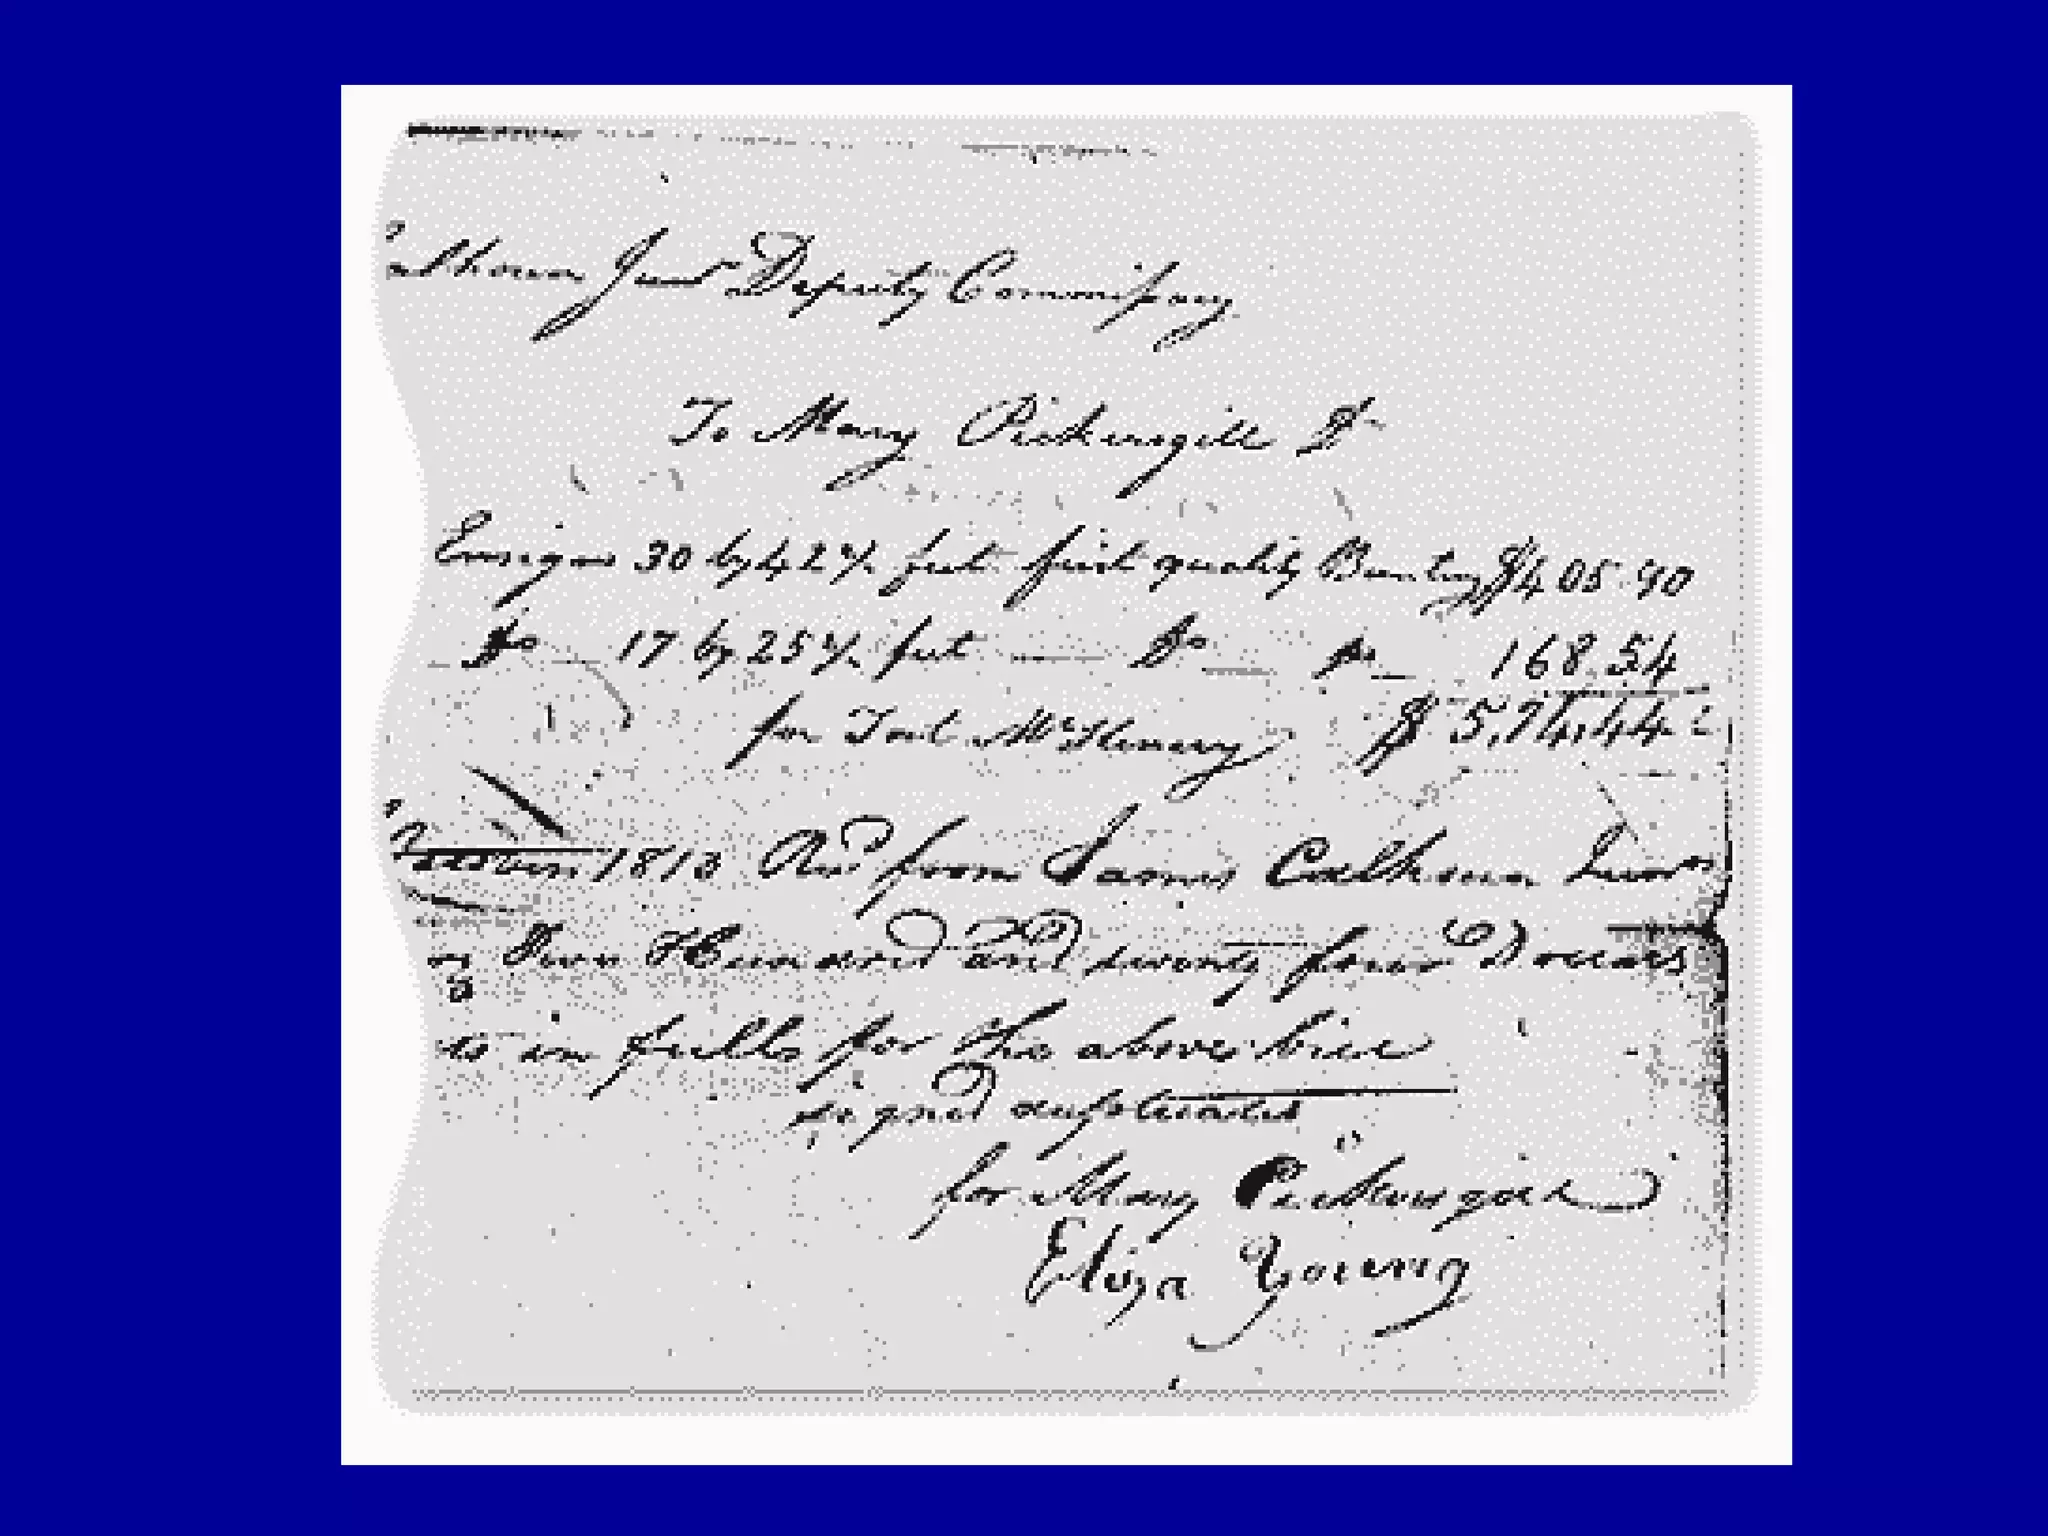 alhoun Junr Deputy Commissary
To Mary Pickersgill Dr
Ensign 30 by 42 feet first quality Bunting $405.90
Do 17 by 25 feet Do 168.54
for Fort McHenry $574.44
October 1813 Recd from James Calhoun Junr
Hundred and seventy four Dollars
ts in full for the above bill
signed duplicates
for Mary Pickersgill
Eliza Young